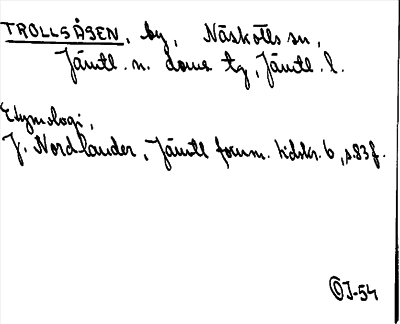 TROLLSÅSEN, by, Näskotts sn,
Jämtl. n. doms. tg, Jämtl. l.
Etymologi,
J. Nordlander, Jämtl fornm. tidskr. 6, s. 83 f.
OJ-54